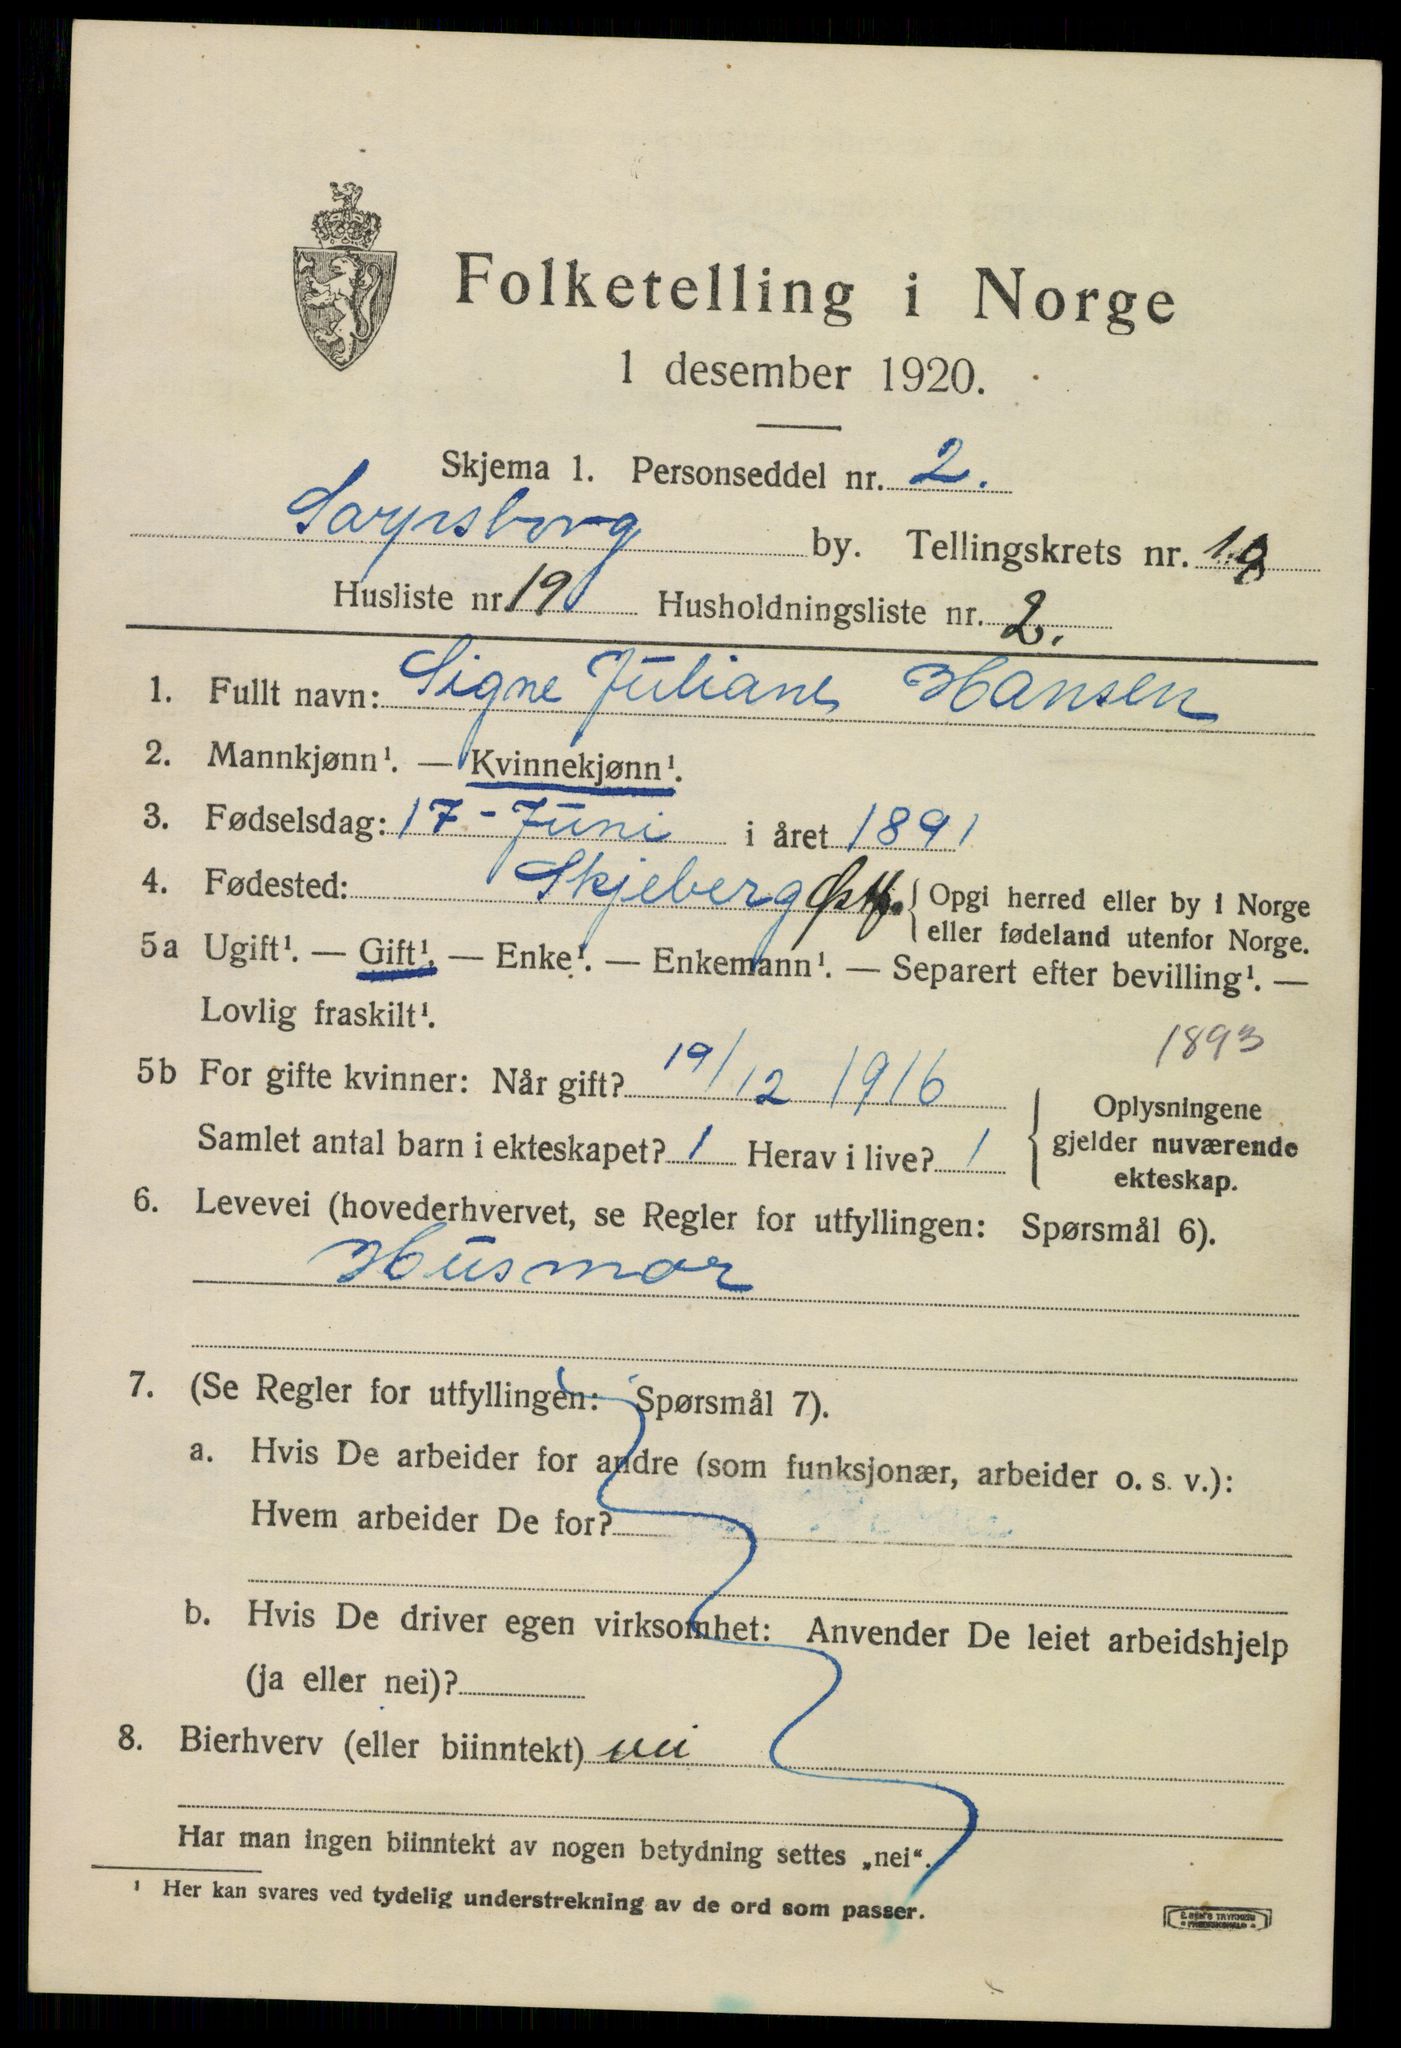 Folketelling i Norge
1 desember 1920.
Skjema 1. Personseddel nr. 2.
Sarpsborg by. Tellingskrets nr.
Husliste nr. 19 Husholdningsliste nr. 2.
1. Fullt navn: Signe Juliane Hansen
2. Mannkjønn¹. — Kvinnekjønn¹.
3. Fødselsdag: 17 - Juni i året 1891
4. Fødested: Skjeberg Østf. { Opgi herred eller by i Norge
eller fødeland utenfor Norge.
5a Ugift¹. — Gift¹. — Enke¹. — Enkemann¹. — Separert efter bevilling¹. —
Lovlig fraskilt¹.
1893
5b For gifte kvinner: Når gift? 19/12 1916
Samlet antal barn i ekteskapet? 1 Herav i live? 1
{ Oplysningene
gjelder nuværende
ekteskap.
6. Levevei (hovederhvervet, se Regler for utfyllingen: Spørsmål 6).
Husmor
7. (Se Regler for utfyllingen: Spørsmål 7).
a. Hvis De arbeider for andre (som funksjonær, arbeider o. s. v.):
Hvem arbeider De for?
b. Hvis De driver egen virksomhet: Anvender De leiet arbeidshjelp
(ja eller nei)?
8. Bierhverv (eller biinntekt) nei
Har man ingen biinntekt av nogen betydning settes „nei“.
¹ Her kan svares ved tydelig understrekning av de ord som passer.